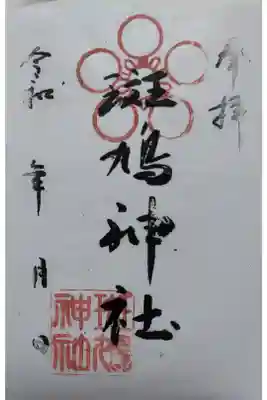 奉拝
斑鳩神社
斑鳩
神社
令和 年 月 日